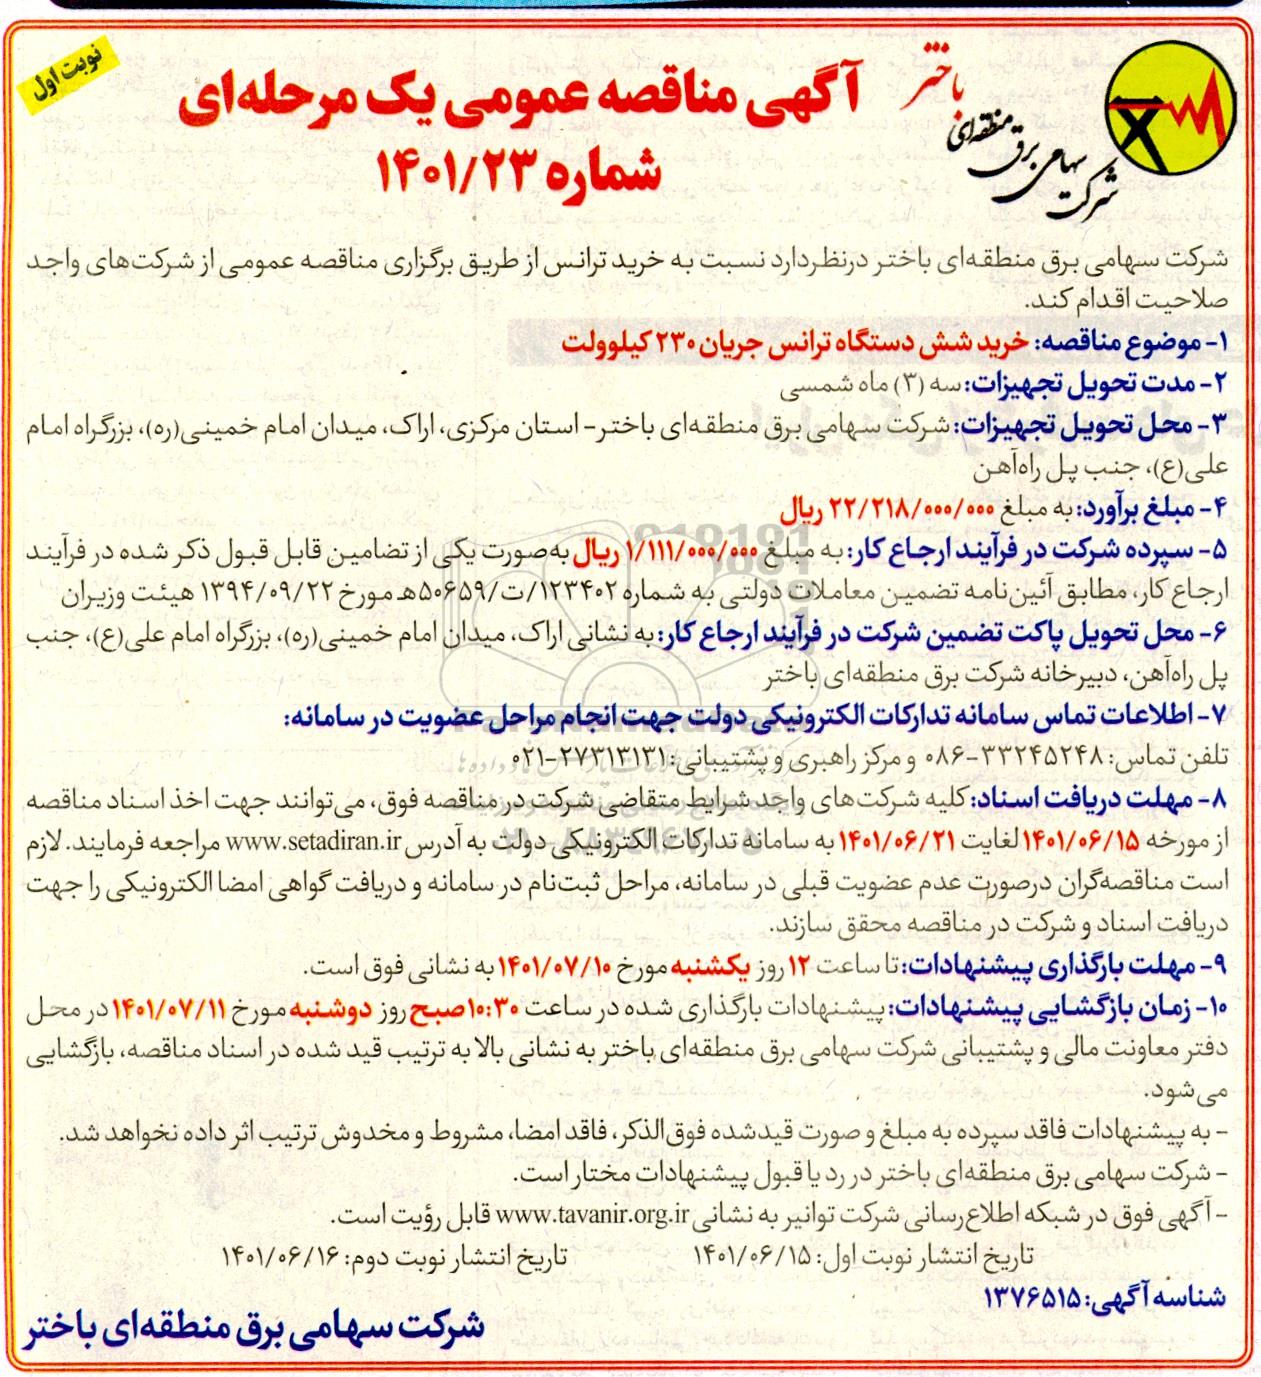 نوبت اول
آگهی مناقصه عمومی یک مرحله‌ای
شماره ۱۴۰۱/۲۳
شرکت سهامی برق منطقه‌ای باختر
شرکت سهامی برق منطقه‌ای باختر درنظردارد نسبت به خرید ترانس از طریق برگزاری مناقصه عمومی از شرکت‌های واجد
صلاحیت اقدام کند.
۱- موضوع مناقصه: خرید شش دستگاه ترانس جریان ۲۳۰ کیلوولت
۲- مدت تحویل تجهیزات: سه (۳) ماه شمسی
۳- محل تحویل تجهیزات: شرکت سهامی برق منطقه‌ای باختر- استان مرکزی، اراک، میدان امام خمینی(ره)، بزرگراه امام
علی(ع)، جنب پل راه‌آهن
۴- مبلغ برآورد: به مبلغ ۲۲/۲۱۸/۰۰۰/۰۰۰ ریال
۵- سپرده شرکت در فرآیند ارجاع کار: به مبلغ ۱/۱۱۱/۰۰۰/۰۰۰ ریال به‌صورت یکی از تضامین قابل قبول ذکر شده در فرآیند
ارجاع کار، مطابق آئین‌نامه تضمین معاملات دولتی به شماره ۱۲۳۴۰۲/ت/۵۰۶۵۹هـ مورخ ۱۳۹۴/۰۹/۲۲ هیئت وزیران
۶- محل تحویل پاکت تضمین شرکت در فرآیند ارجاع کار: به نشانی اراک، میدان امام خمینی(ره)، بزرگراه امام علی(ع)، جنب
پل راه‌آهن، دبیرخانه شرکت برق منطقه‌ای باختر
۷- اطلاعات تماس سامانه تدارکات الکترونیکی دولت جهت انجام مراحل عضویت در سامانه:
تلفن تماس: ۳۳۲۴۵۲۴۸-۰۸۶ و مرکز راهبری و پشتیبانی: ۲۷۳۱۳۱۳۱-۰۲۱
۸- مهلت دریافت اسناد: کلیه شرکت‌های واجد شرایط متقاضی شرکت در مناقصه فوق، می‌توانند جهت اخذ اسناد مناقصه
از مورخه ۱۴۰۱/۰۶/۱۵ لغایت ۱۴۰۱/۰۶/۲۱ به سامانه تدارکات الکترونیکی دولت به آدرس www.setadiran.ir مراجعه فرمایند. لازم
است مناقصه‌گران درصورت عدم عضویت قبلی در سامانه، مراحل ثبت‌نام در سامانه و دریافت گواهی امضا الکترونیکی را جهت
دریافت اسناد و شرکت در مناقصه محقق سازند.
۹- مهلت بارگذاری پیشنهادات: تا ساعت ۱۲ روز یکشنبه مورخ ۱۴۰۱/۰۷/۱۰ به نشانی فوق است.
۱۰- زمان بازگشایی پیشنهادات: پیشنهادات بارگذاری شده در ساعت ۱۰:۳۰ صبح روز دوشنبه مورخ ۱۴۰۱/۰۷/۱۱ در محل
دفتر معاونت مالی و پشتیبانی شرکت سهامی برق منطقه‌ای باختر به نشانی بالا به ترتیب قید شده در اسناد مناقصه، بازگشایی
می‌شود.
- به پیشنهادات فاقد سپرده به مبلغ و صورت قیدشده فوق‌الذکر، فاقد امضا، مشروط و مخدوش ترتیب اثر داده نخواهد شد.
- شرکت سهامی برق منطقه‌ای باختر در رد یا قبول پیشنهادات مختار است.
- آگهی فوق در شبکه اطلاع‌رسانی شرکت توانیر به نشانی www.tavanir.org.ir قابل رؤیت است.
تاریخ انتشار نوبت اول: ۱۴۰۱/۰۶/۱۵ تاریخ انتشار نوبت دوم: ۱۴۰۱/۰۶/۱۶
شناسه آگهی: ۱۳۷۶۵۱۵
شرکت سهامی برق منطقه‌ای باختر